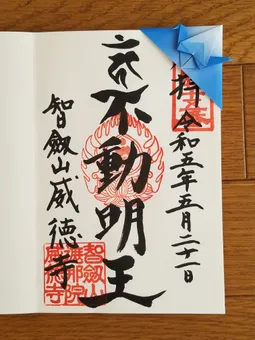 拝 令和五年五月二十一日
不動明王
智劔山威徳寺
智劔山
威徳寺